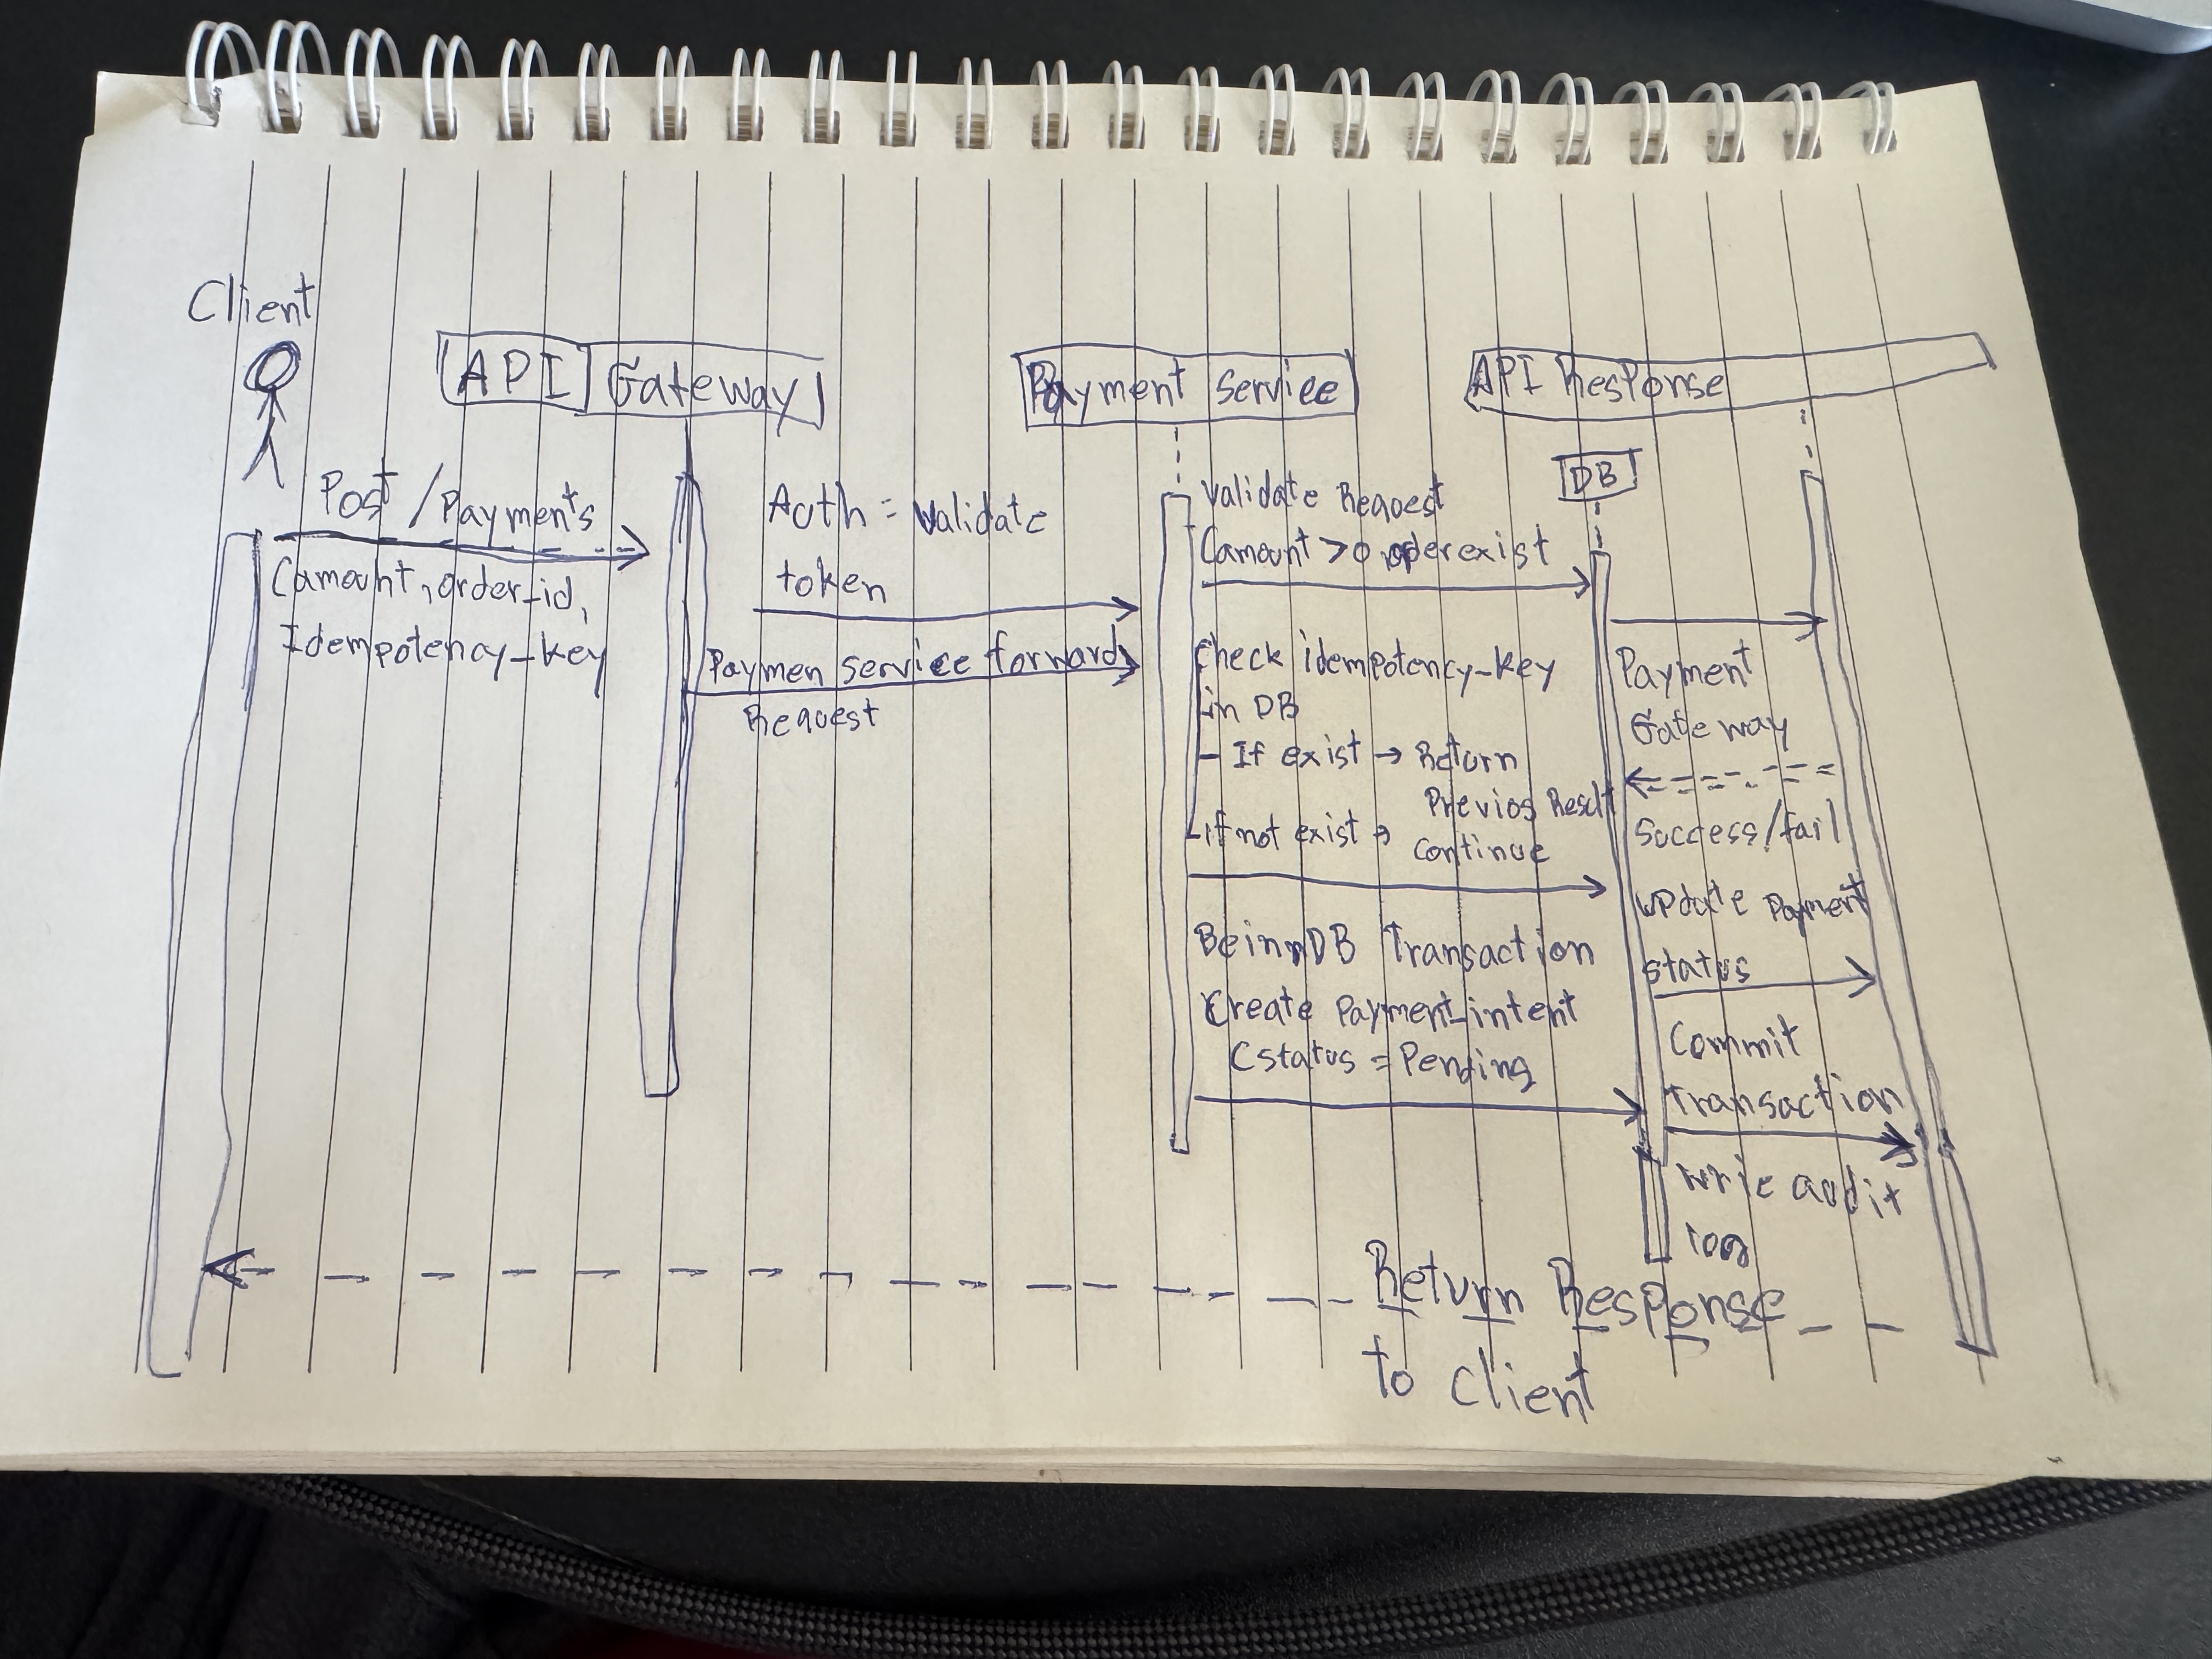 Client
API Gateway
Payment Service
API Response
DB
Post /Payments
Camount, order_id,
Idempotency_key
Auth = validate
token
Paymen service forward
Request
Validate Request
Camount >0 order exist
Check idempotency_key
in DB
- If exist → Return
Previos Result
- if not exist → continue
Beinn DB Transaction
Create Payment_intent
Cstatus = Pending
Payment
Gateway
Success/fail
update Payment
status
Commit
Transaction
Write audit
log
Return Response
to client